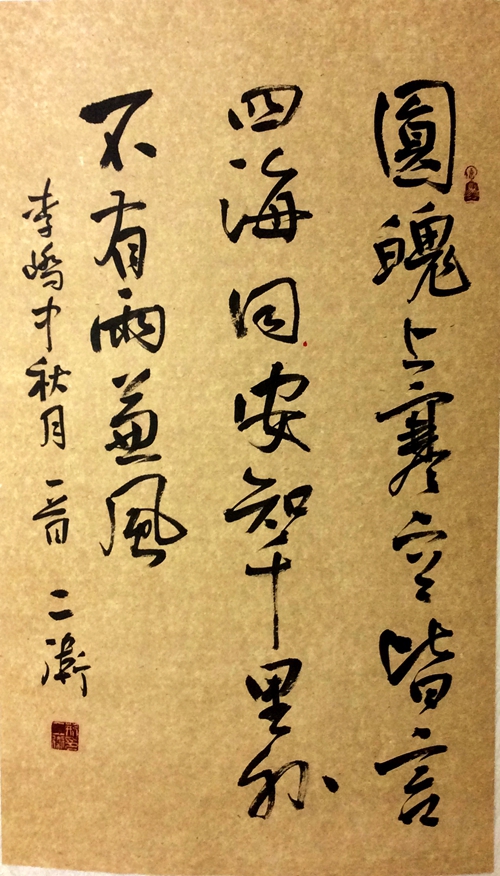 圓魄上寒空皆言
四海同安知千里外
不有雨兼風
李嶠中秋月 二衛